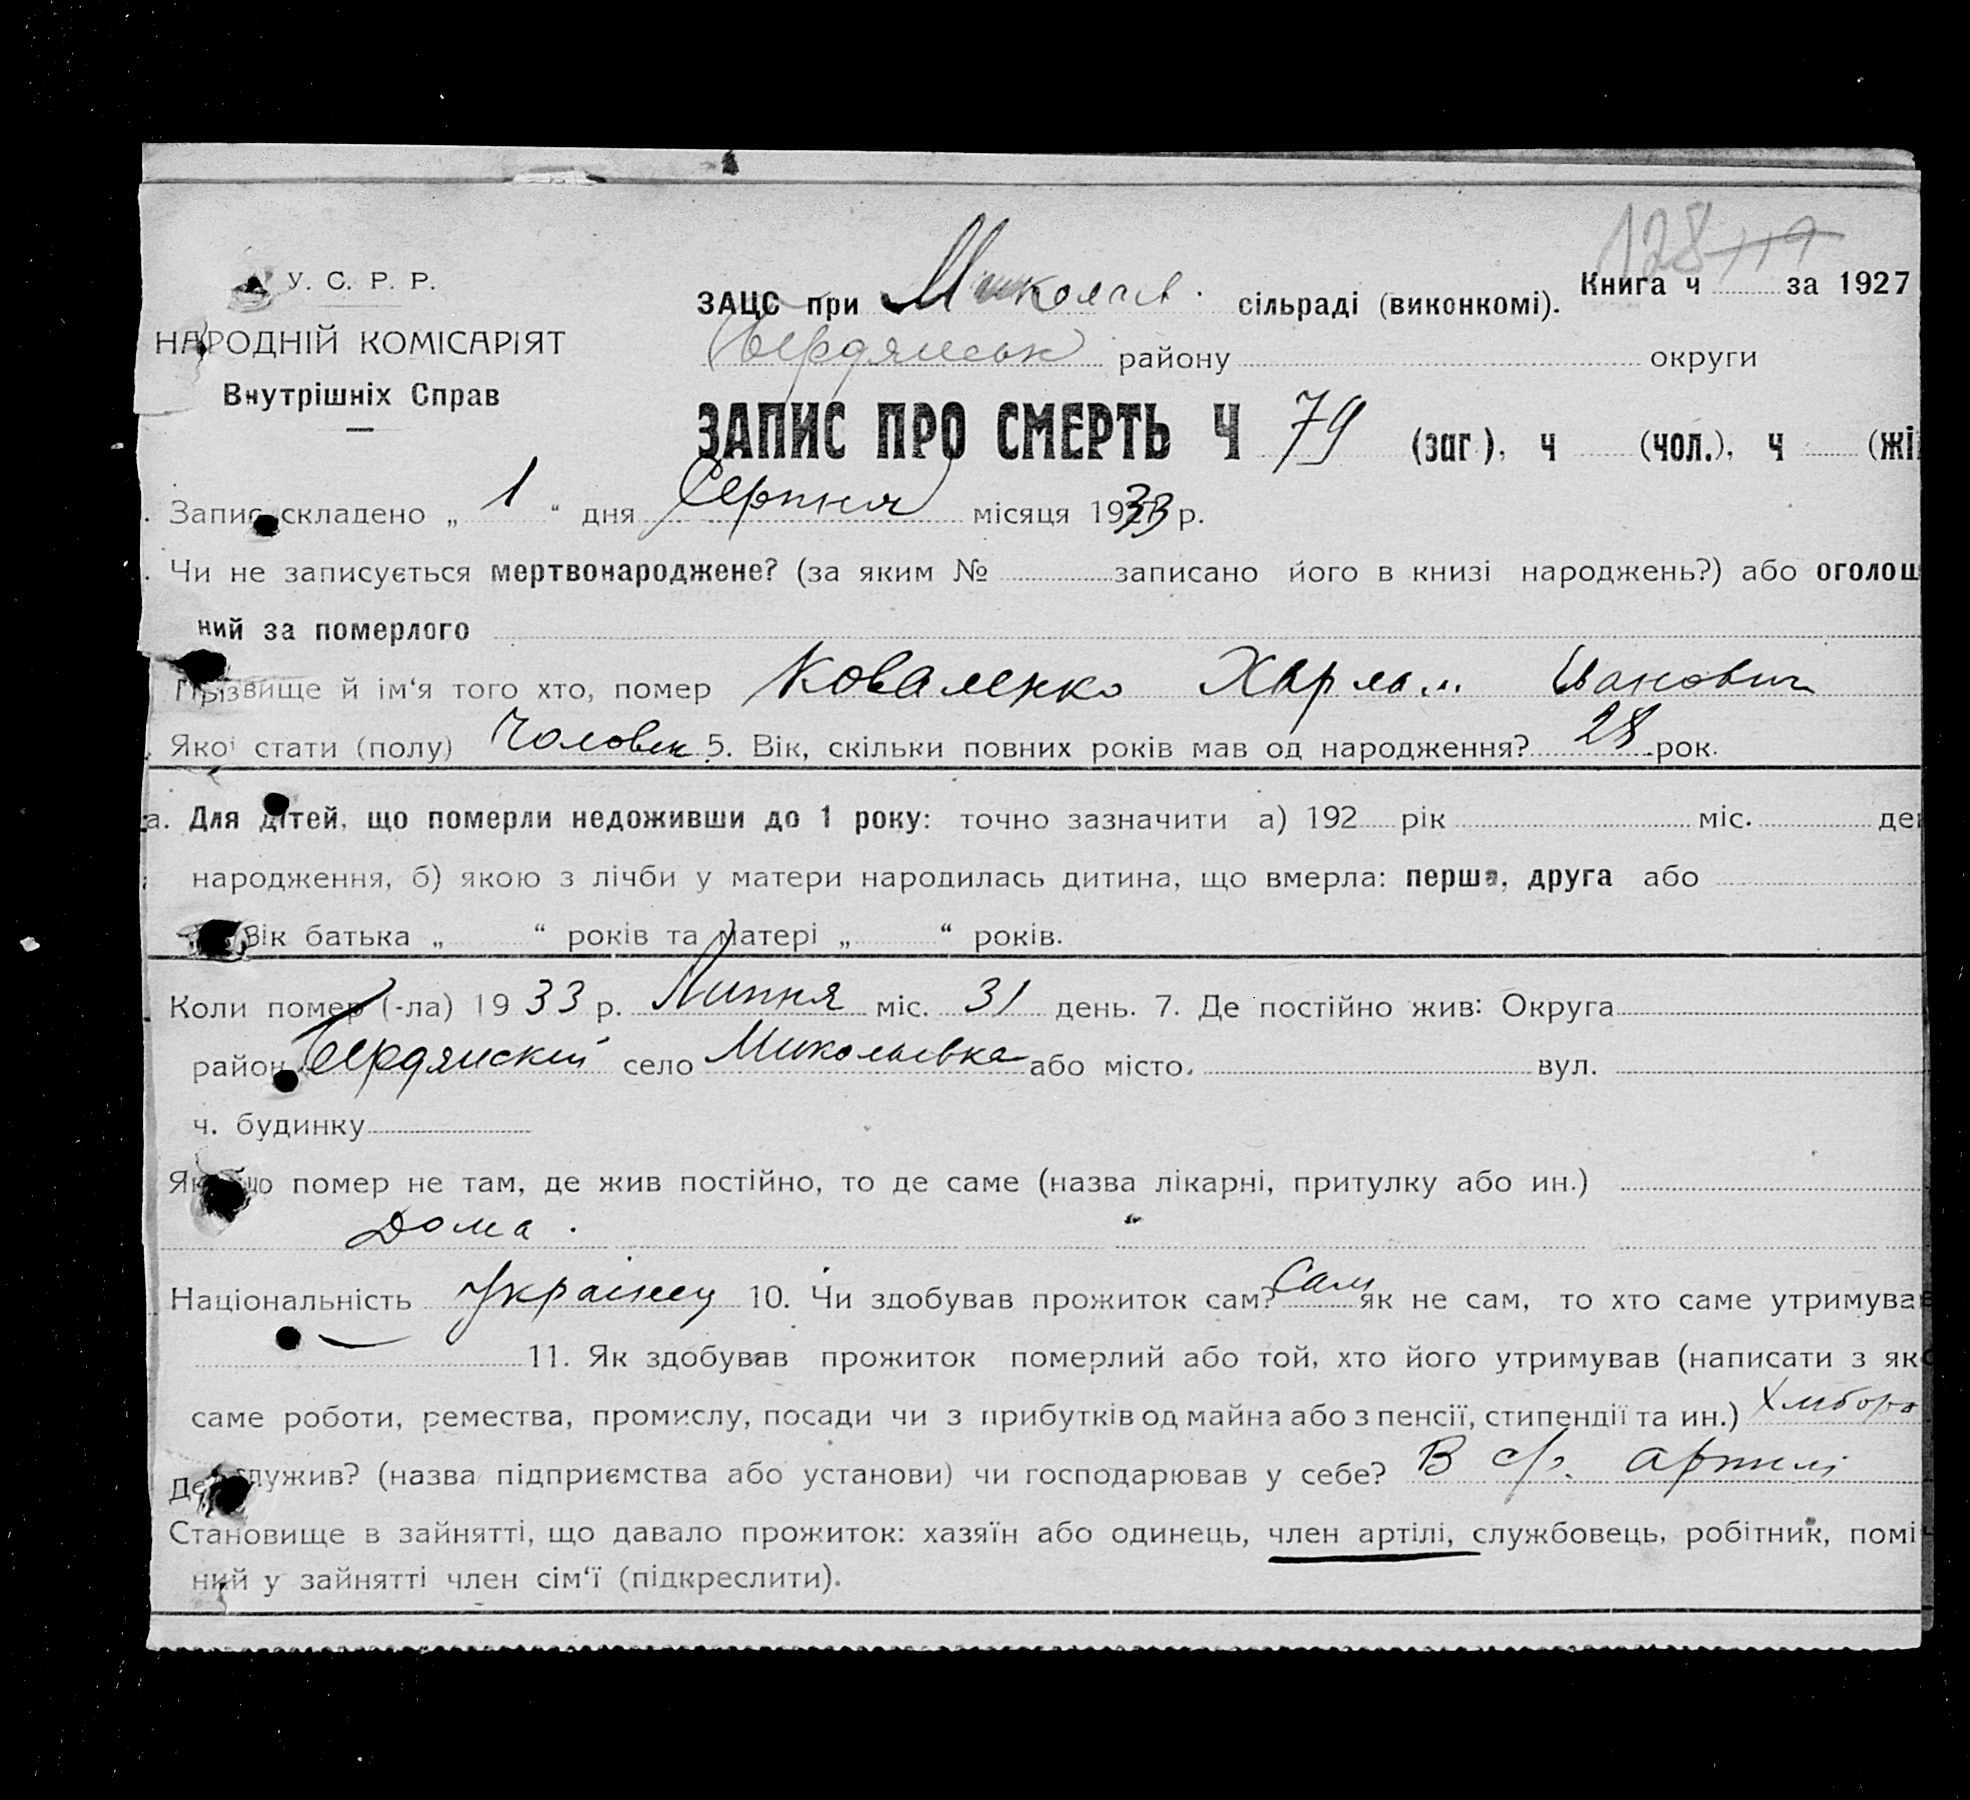 128 119
У. С. Р. Р.
НАРОДНІЙ КОМІСАРІЯТ
Внутрішніх Справ
ЗАЦС при Миколаїв. сільраді (виконкомі). Книга ч за 1927
Бердянськ району округи
ЗАПИС ПРО СМЕРТЬ Ч 79 (заг.), ч (чол.), ч (жі
Запис складено „ 1 “ дня Серпня місяця 1933 р.
Чи не записується мертвонароджене? (за яким № записано його в книзі народжень?) або оголош
ний за померлого
Прізвище й ім‘я того хто, помер Коваленко Іванович
Якої стати (полу) Чоловік 5. Вік, скільки повних років мав од народження? 28 рок.
а. Для дітей, що померли недоживши до 1 року: точно зазначити а) 192 рік міс. ден
народження, б) якою з лічби у матери народилась дитина, що вмерла: перша, друга або
Вік батька „ “ років та матері „ “ років.
Коли помер (-ла) 1933 р. Липня міс. 31 день. 7. Де постійно жив: Округа
район Бердянский село Миколаївка або місто. вул.
ч. будинку
Якщо помер не там, де жив постійно, то де саме (назва лікарні, притулку або ин.)
Дома.
Національність Українец 10. Чи здобував прожиток сам? Сам як не сам, то хто саме утримував
— 11. Як здобував прожиток померлий або той, хто його утримував (написати з яко
саме роботи, ремества, промислу, посади чи з прибутків од майна або з пенсії, стипендії та ин.) Хлібороб
Де служив? (назва підприємства або установи) чи господарював у себе? В с/г. артилі
Становище в зайнятті, що давало прожиток: хазяїн або одинець, член артілі, службовець, робітник, поміч
ний у зайнятті член сім‘ї (підкреслити).